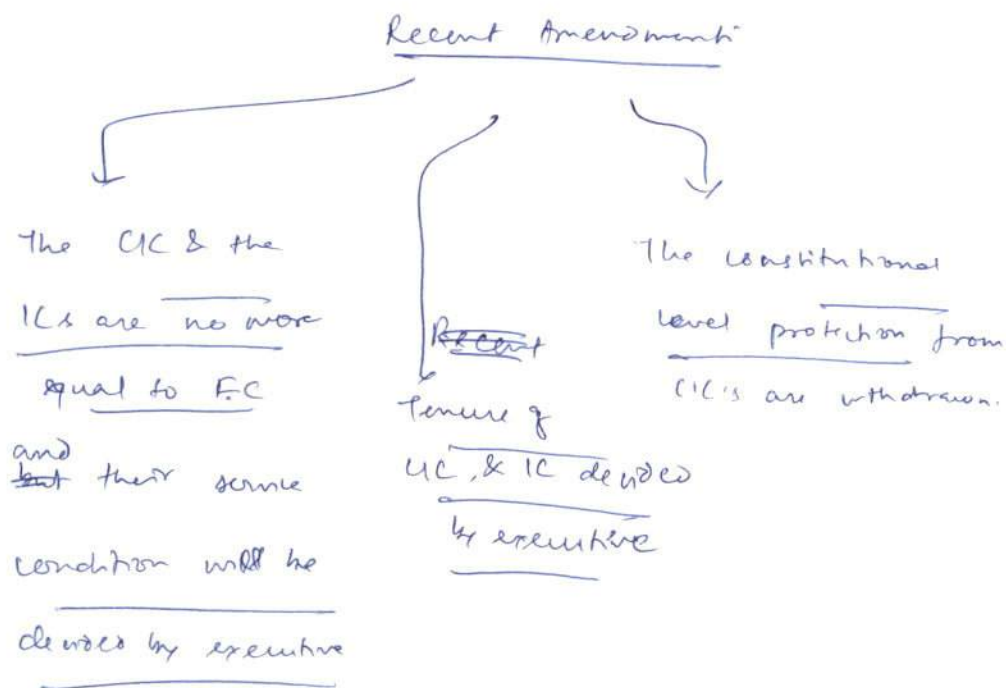 Recent Amendments
The CIC & the
ICs are no more
equal to E.C
and
but their service
condition will be
decided by executive
Recent
Tenure of
CIC, & IC decided
by executive
The constitutional
level protection from
CIC's are withdrawn.